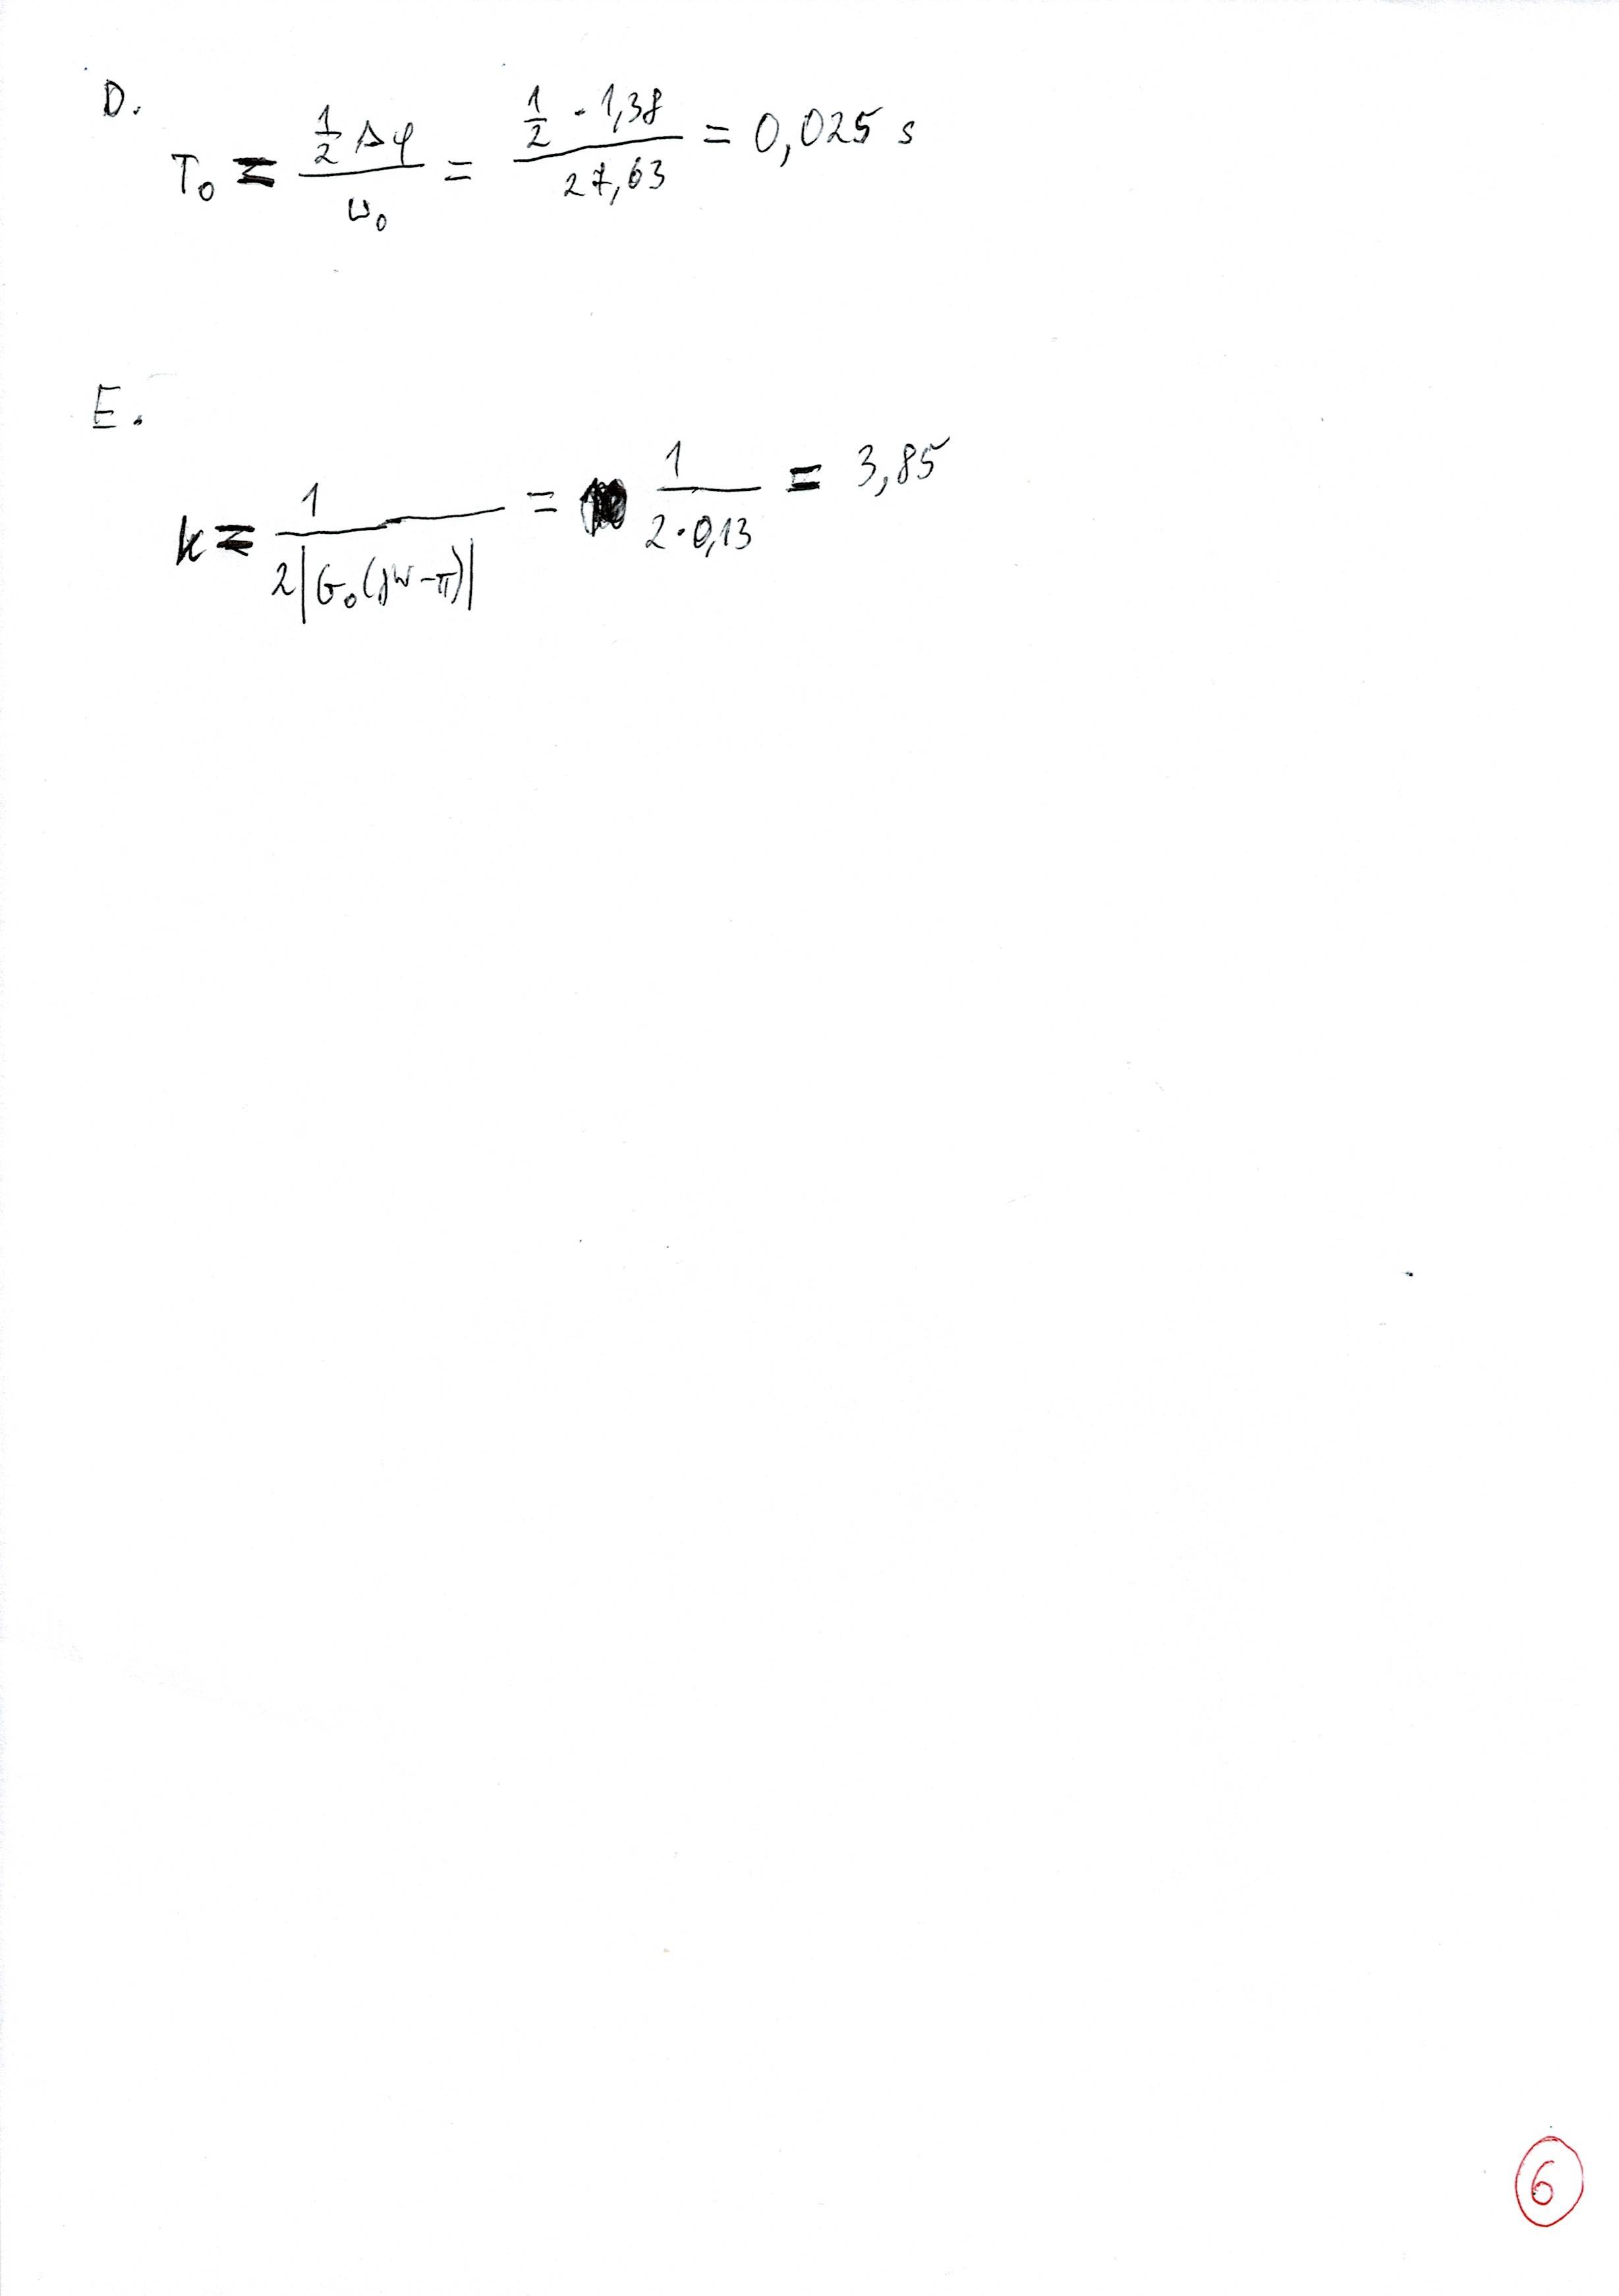 D.
T₀ = (½ Δφ)/ω₀ = (½ · 1,38)/27,63 = 0,025 s
E.
k = 1/(2|G₀(jω-π)|) = 1/(2·0,13) = 3,85
6